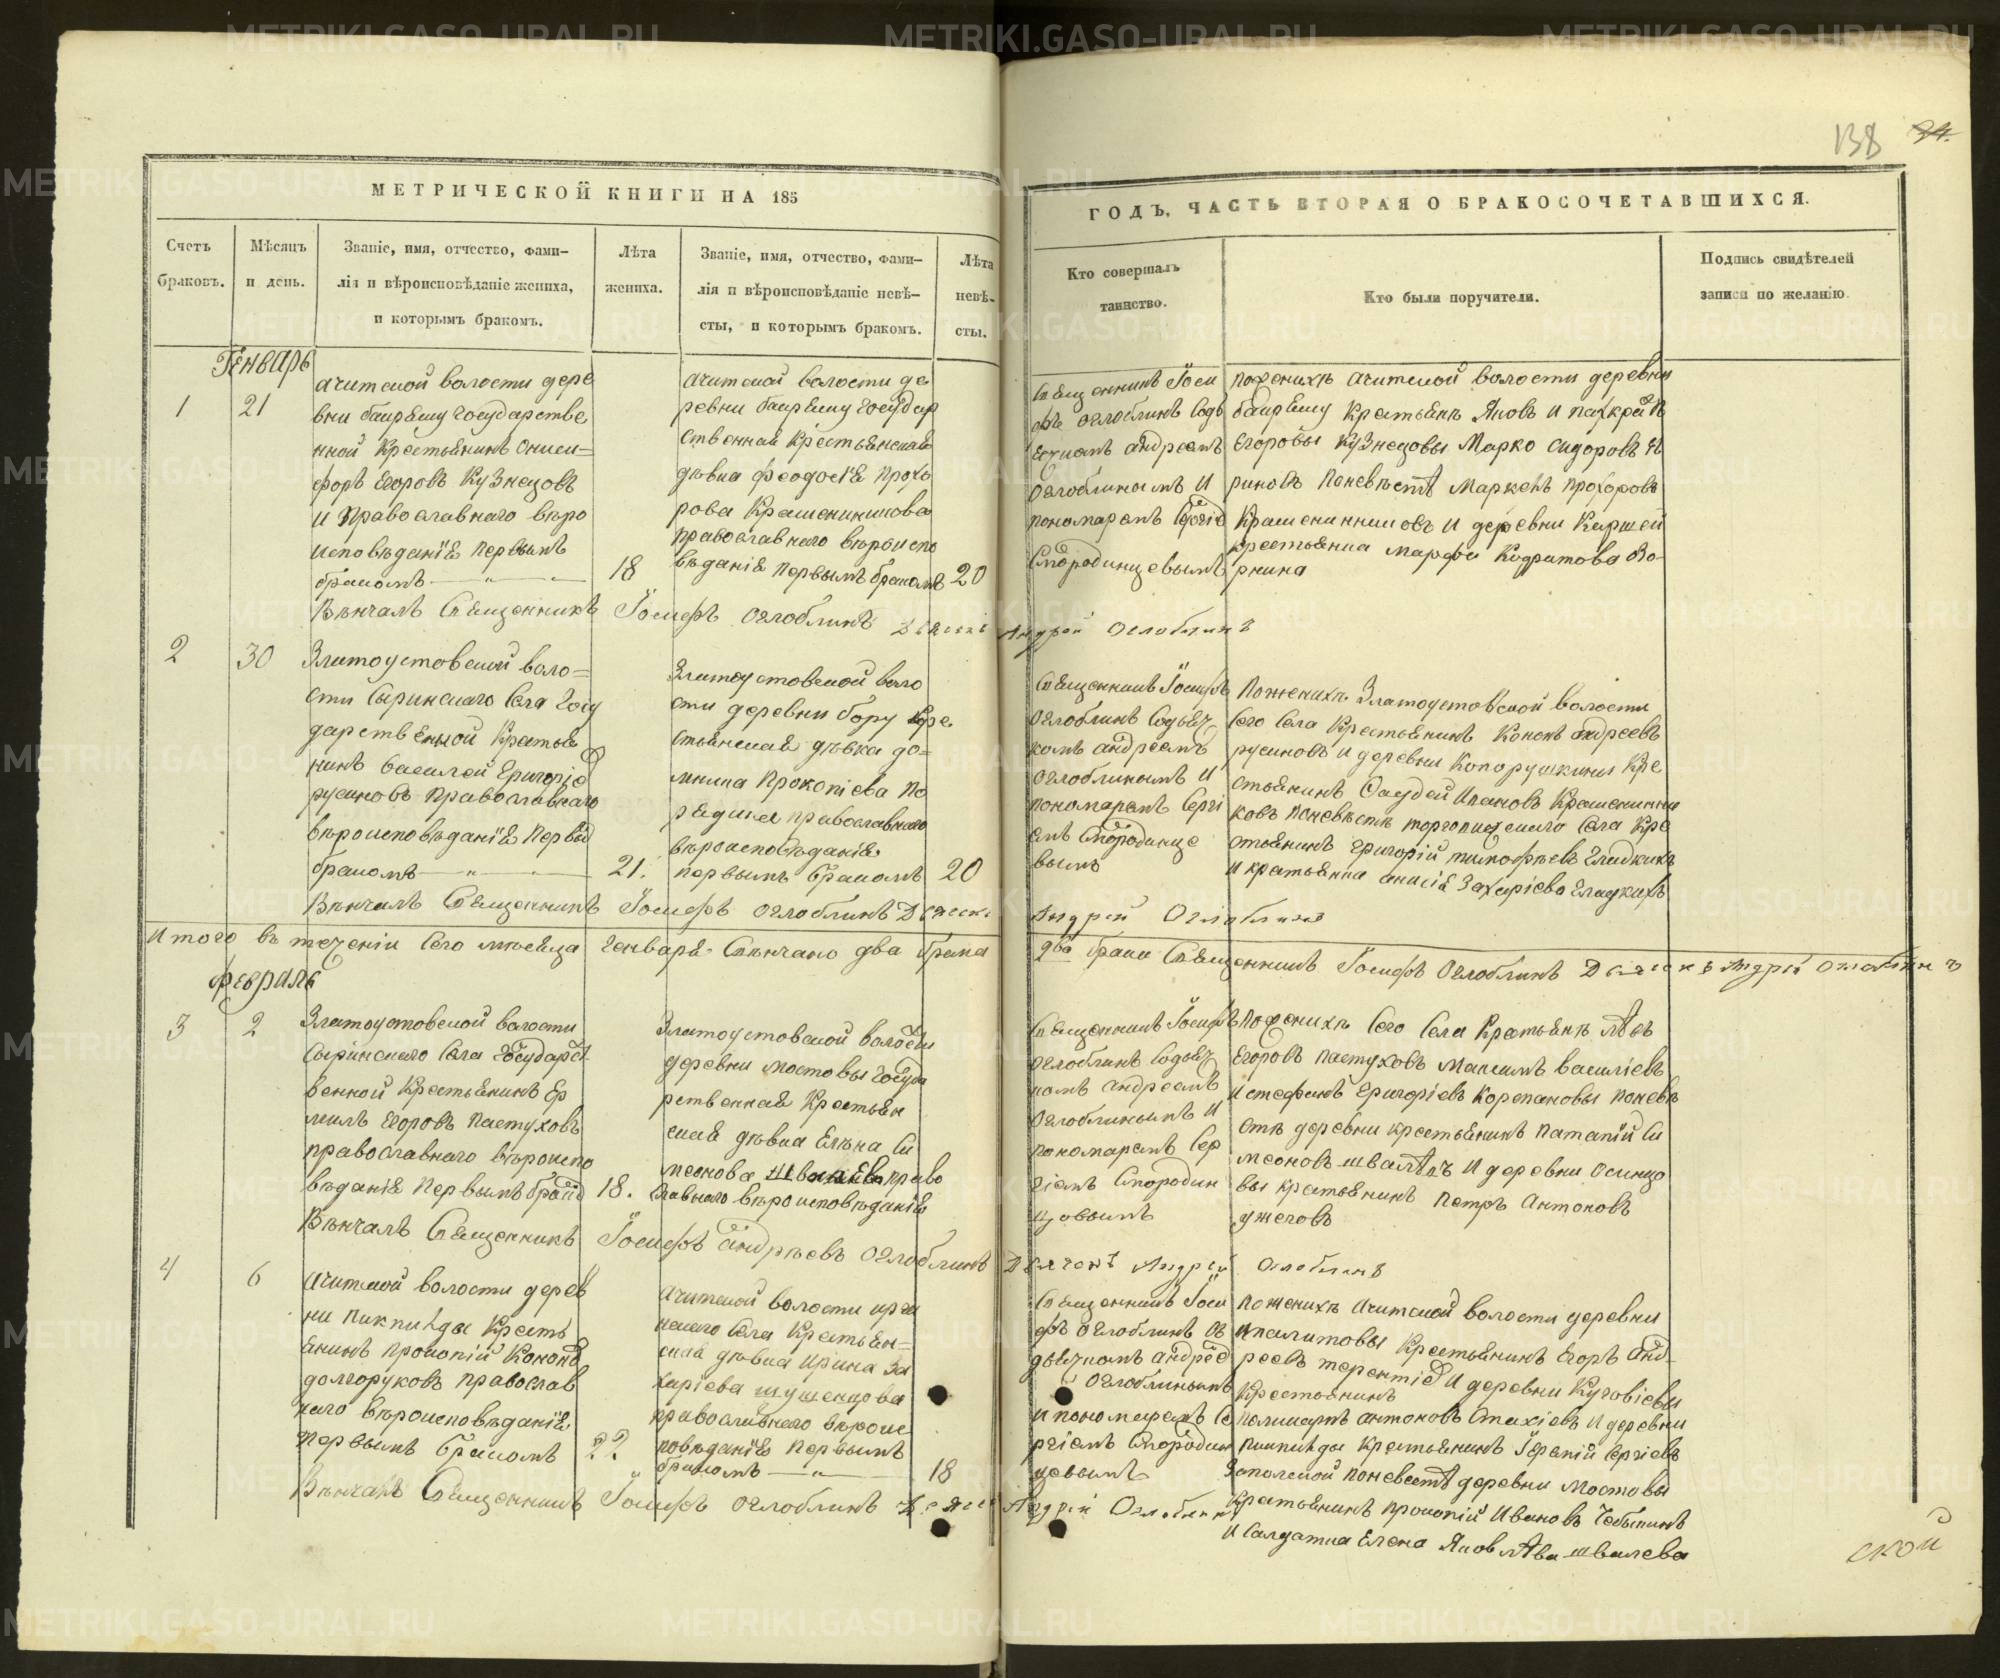 138 34.
МЕТРИЧЕСКОЙ КНИГИ НА 185
Счетъ браковъ.
Мѣсяцъ и день.
Званіе, имя, отчество, фами-
лія и вѣроисповѣданіе жениха,
и которымъ бракомъ.
Лѣта жениха.
Званіе, имя, отчество, фами-
лія и вѣроисповѣданіе невѣ-
сты, и которымъ бракомъ.
Лѣта невѣ-
сты.
ГОДЪ, ЧАСТЬ ВТОРАЯ О БРАКОСОЧЕТАВШИХСЯ.
Кто совершалъ
таинство.
Кто были поручители.
Подпись свидѣтелей
записи по желанію.
Генварь
1 21
ачитской волости дере
вни баиряшу государстве
нной Крестьянинъ Ониси=
форъ Егоровъ Кузнецовъ
и Православнаго вѣро
исповѣданія первымъ
бракомъ
18
ачитской волости де
ревни баиряшу государ
ственная Крестьянская
дѣвка Феодосія Прохо
рова Крашенинникова
православнаго вѣроиспо
вѣданія первымъ бракомъ
20
Священникъ Іоси
фъ Оглоблинъ съдь
ячкомъ андреемъ
Оглоблинымъ и
пономаремъ Сергіе
Смородинцевымъ
поженихѣ ачитской волости деревни
баиряшу Крестьяне Яковъ и панкратъ
Егоровы Кузнецовы Марко сидоровъ
поневѣстѣ Прохоровъ
Крашенинниковъ и деревни
крестьянка марфа
Вѣнчалъ Священникъ Іосифъ Оглоблинъ Дьячекъ Андрей Оглоблинъ
2 30
Златоустовской воло=
сти Сыринскаго Села Госу
дарственной Крестья
нинъ василей Григоріе
русиновъ Православнаго
вѣроисповѣданія первы
бракомъ
21.
Златоустовской воло
сти деревни бору Кре
стьянская дѣвка до=
мнина Прокопіева по
православнаго
вѣроисповѣданія
первымъ бракомъ
20
Священникъ Іосифъ
Оглоблинъ Содьяч
комъ андреемъ
Оглоблинымъ и
пономаремъ Сергі
емъ Смородинце
вымъ
Поженихѣ Златоустовской волости
Сего Села Крестьянинъ Кононъ андреевъ
русиновъ и деревни Копорушкины Кре
стьянинъ Ивановъ Крашенинни
ковъ поневѣстѣ Села Кре
стьянинъ Григорій тимофѣевъ Гладкихъ
и крестьянка анисія Захаріева Гладкихъ
Вѣнчалъ Священникъ Іосифъ Оглоблинъ Дьячекъ Андрей Оглоблинъ
Итого въ теченіи Сего мѣсяца Генваря Свѣнчано два брака
два брака Священникъ Іосифъ Оглоблинъ Дьячекъ Андрей Оглоблинъ
Февраль
3 2
Златоустовской волости
Сыринскаго Села государст
венной Крестьянинъ Ер
милъ Егоровъ Пастуховъ
православнаго вѣроиспо
вѣданія первымъ брако
18.
Златоустовской волости
деревни мостовы госуда
рственная Крестьян
ская дѣвка Елена Си
меонова Швалева право
славнаго вѣроисповѣданія
Священникъ Іосифъ
Оглоблинъ Содьяч
комъ андреемъ
Оглоблинымъ и
пономаремъ Сер
гіемъ Смородин
цовымъ
Поженихѣ Сего Села Крестьяне
Егоровъ пастуховъ Максимъ василіевъ
и стефанъ Григоріевъ Корепановы поневѣ
стѣ деревни крестьянинъ патапій Си
меоновъ швалевъ и деревни осинцо
вы крестьянинъ петръ антоновъ
ужеговъ
Вѣнчалъ Священникъ Іосифъ андрѣевъ Оглоблинъ Дьячекъ Андрей Оглоблинъ
4 6
ачитской волости дерев
ни Крестья
янинъ прокопій Кононо
долгоруковъ православ
наго вѣроисповѣданія
Первымъ бракомъ
22
ачитской волости
Села Крестьян=
ская дѣвка ирина За
харіева шушенцова
православнаго вѣроис
повѣданія первымъ
бракомъ
18
Священникъ Іоси
фъ Оглоблинъ съ
дьячкомъ андрее
Оглоблинымъ
и пономаремъ Се
ргіемъ Смородин
цевымъ
Поженихѣ ачитской волости деревни
Крестьянинъ Егоръ анд-
реевъ терентіе и деревни
Крестьянинъ
антоновъ Стахіевъ и деревни
Крестьянинъ Сергіевъ
поневестѣ деревни мостовы
Крестьянинъ прокопій Ивановъ Чебыкинъ
и Салдатка Елена Яковлева швалева
Вѣнчалъ Священникъ Іосифъ Оглоблинъ Дьячекъ Андрей Оглоблинъ
ской